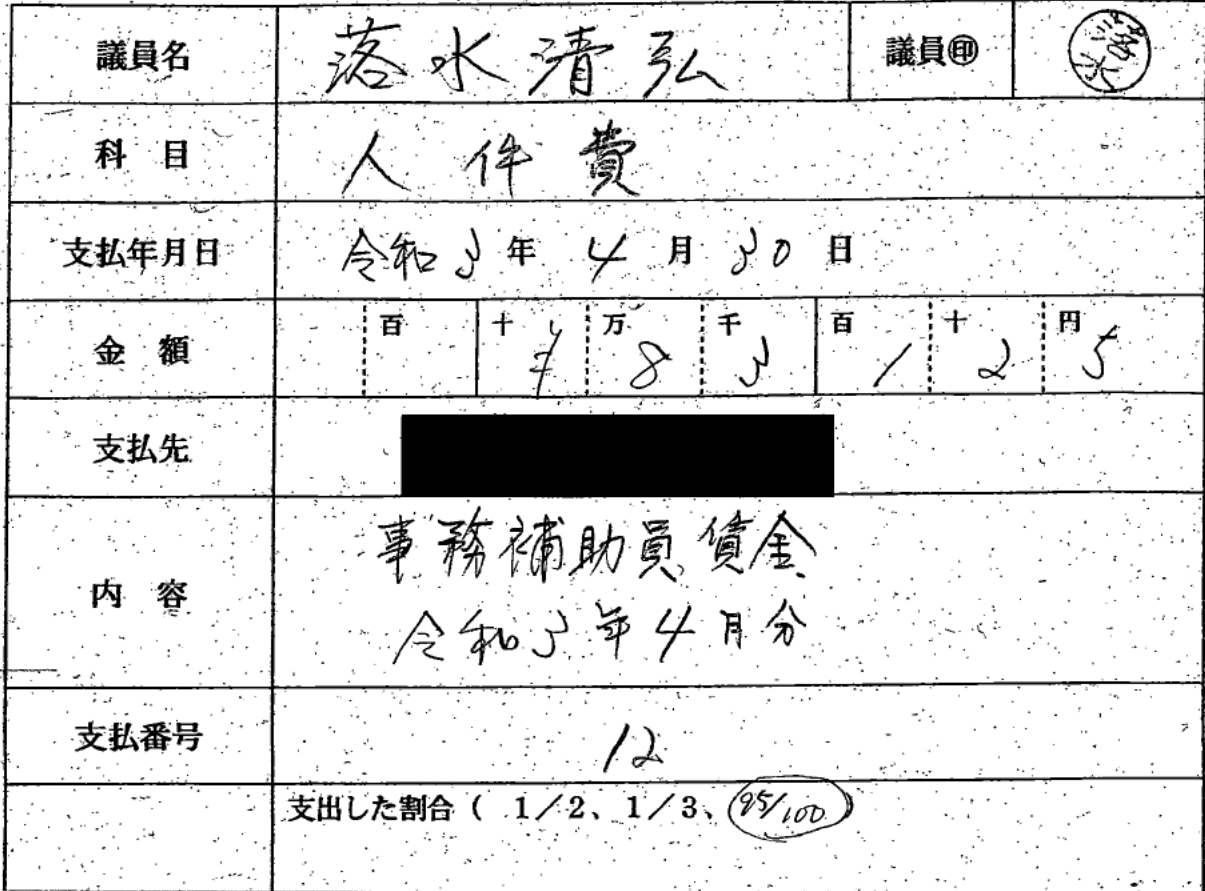 議員名 落水清弘 議員㊞
科 目 人件費
支払年月日 令和3年4月30日
金 額 百 十 ¥ 万 8 千 3 百 1 十 2 円 5
支払先
内 容 事務補助員賃金
令和3年4月分
支払番号 12
支出した割合（ 1／2、1／3、95/100）